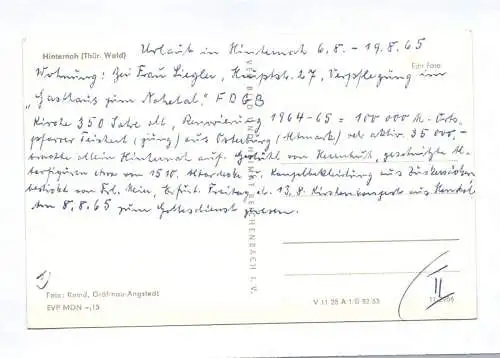 Hinternah (Thür. Wald)
Urlaub in Hinternah 6.8. – 19.8.65
Echt Foto
Wohnung: bei Frau Ziegler, Hauptstr. 27, Verpflegung im
„Gasthaus zum Nahetal“, FDGB
Kirche 350 Jahre alt, Renovierung 1964–65 = 100 000 M. Orts-
pfarrer (jung) aus Osterburg (Altmark) sehr aktiv. 35 000,–
brachte allein Hinternah auf. Gestühl von geschnitzte Al-
tarfiguren etwa von 1510. Altardecke u. Kanzelbekleidung aus
von Frl. Erfurt. Freitag d. 13.8. Kirchenkonzert aus
Am 8.8.65 zum Gottesdienst gewesen.
VEB BILD UND HEIMAT REICHENBACH I. V.
1)
Foto: Remd, Gräfinau-Angstedt
EVP MDN –,15
V 11 28 A 1/G 52 63
II